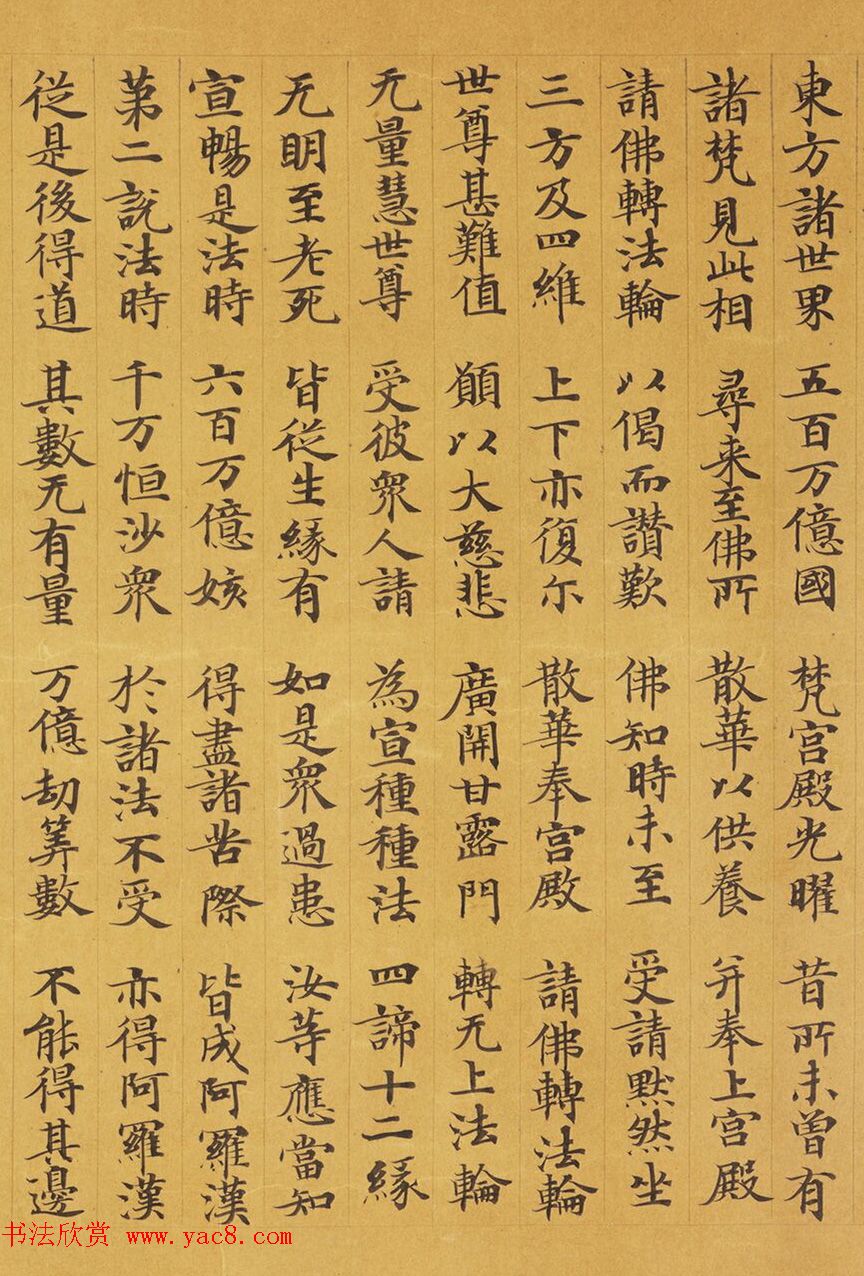 東方諸世界 五百万億國 梵宮殿光曜 昔所未曾有
諸梵見此相 尋来至佛所 散華以供養 并奉上宮殿
請佛轉法輪 以偈而讃歎 佛知時未至 受請黙然坐
三方及四維 上下亦復尓 散華奉宮殿 請佛轉法輪
世尊甚難值 願以大慈悲 廣開甘露門 轉无上法輪
无量慧世尊 受彼衆人請 為宣種種法 四諦十二緣
无明至老死 皆従生緣有 如是衆過患 汝等應當知
宣暢是法時 六百万億姟 得盡諸苦際 皆成阿羅漢
第二說法時 千万恒沙衆 於諸法不受 亦得阿羅漢
従是後得道 其數无有量 万億劫筭數 不能得其邊
书法欣赏 www.yac8.com